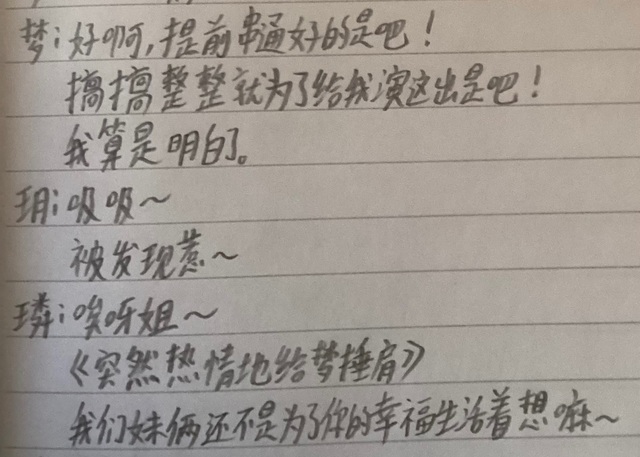 梦：好啊，提前串通好的是吧！
搞搞整整就为了给我演这出是吧！
我算是明白了。
玥：吸吸～
被发现惹～
璘：唉呀姐～
《突然热情地给梦捶肩》
我们妹俩还不是为了你的幸福生活着想嘛～